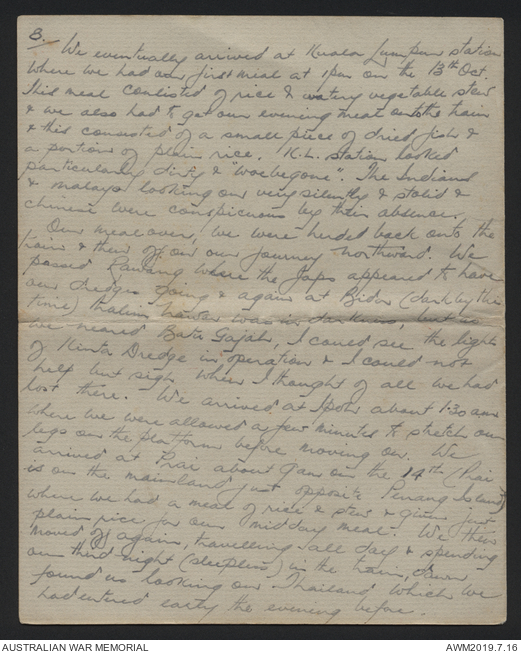 3.
We eventually arrived at Kuala Lumpur station
where we had our first meal at 1pm on the 13th Oct.
This meal consisted of rice & watery vegetable stew
& we also had to get our evening meal onto the train
& this consisted of a small piece of dried fish &
a portion of plain rice. K.L. station looked
particularly dirty & "woebegone". The Indians
& malays looking on very silently & stolid &
chinese were conspicuous by their absence.
Our meal over, we were herded back onto the
train & then off on our journey northward. We
passed Rawang where the Japs appeared to have
our dredges going & again at Bidor (dark by this
time) was in darkness, but as
we neared Batu Gajah, I could see the lights
of Kinta Dredge in operation & I could not
help but sigh when I thought of all we had
lost there. We arrived at Ipoh about 1.30 am
where we were allowed a few minutes to stretch our
legs on the platform before moving on. We
arrived at Prai about 9am on the 14th (Prai
is on the mainland just opposite Penang Island)
where we had a meal of rice & stew & given just
plain rice for our midday meal. We then
moved off again, travelling all day & spending
our third night (sleepless) in the train, dawn
found us looking on Thailand which we
had entered early the evening before.
AUSTRALIAN WAR MEMORIAL
AWM2019.7.16